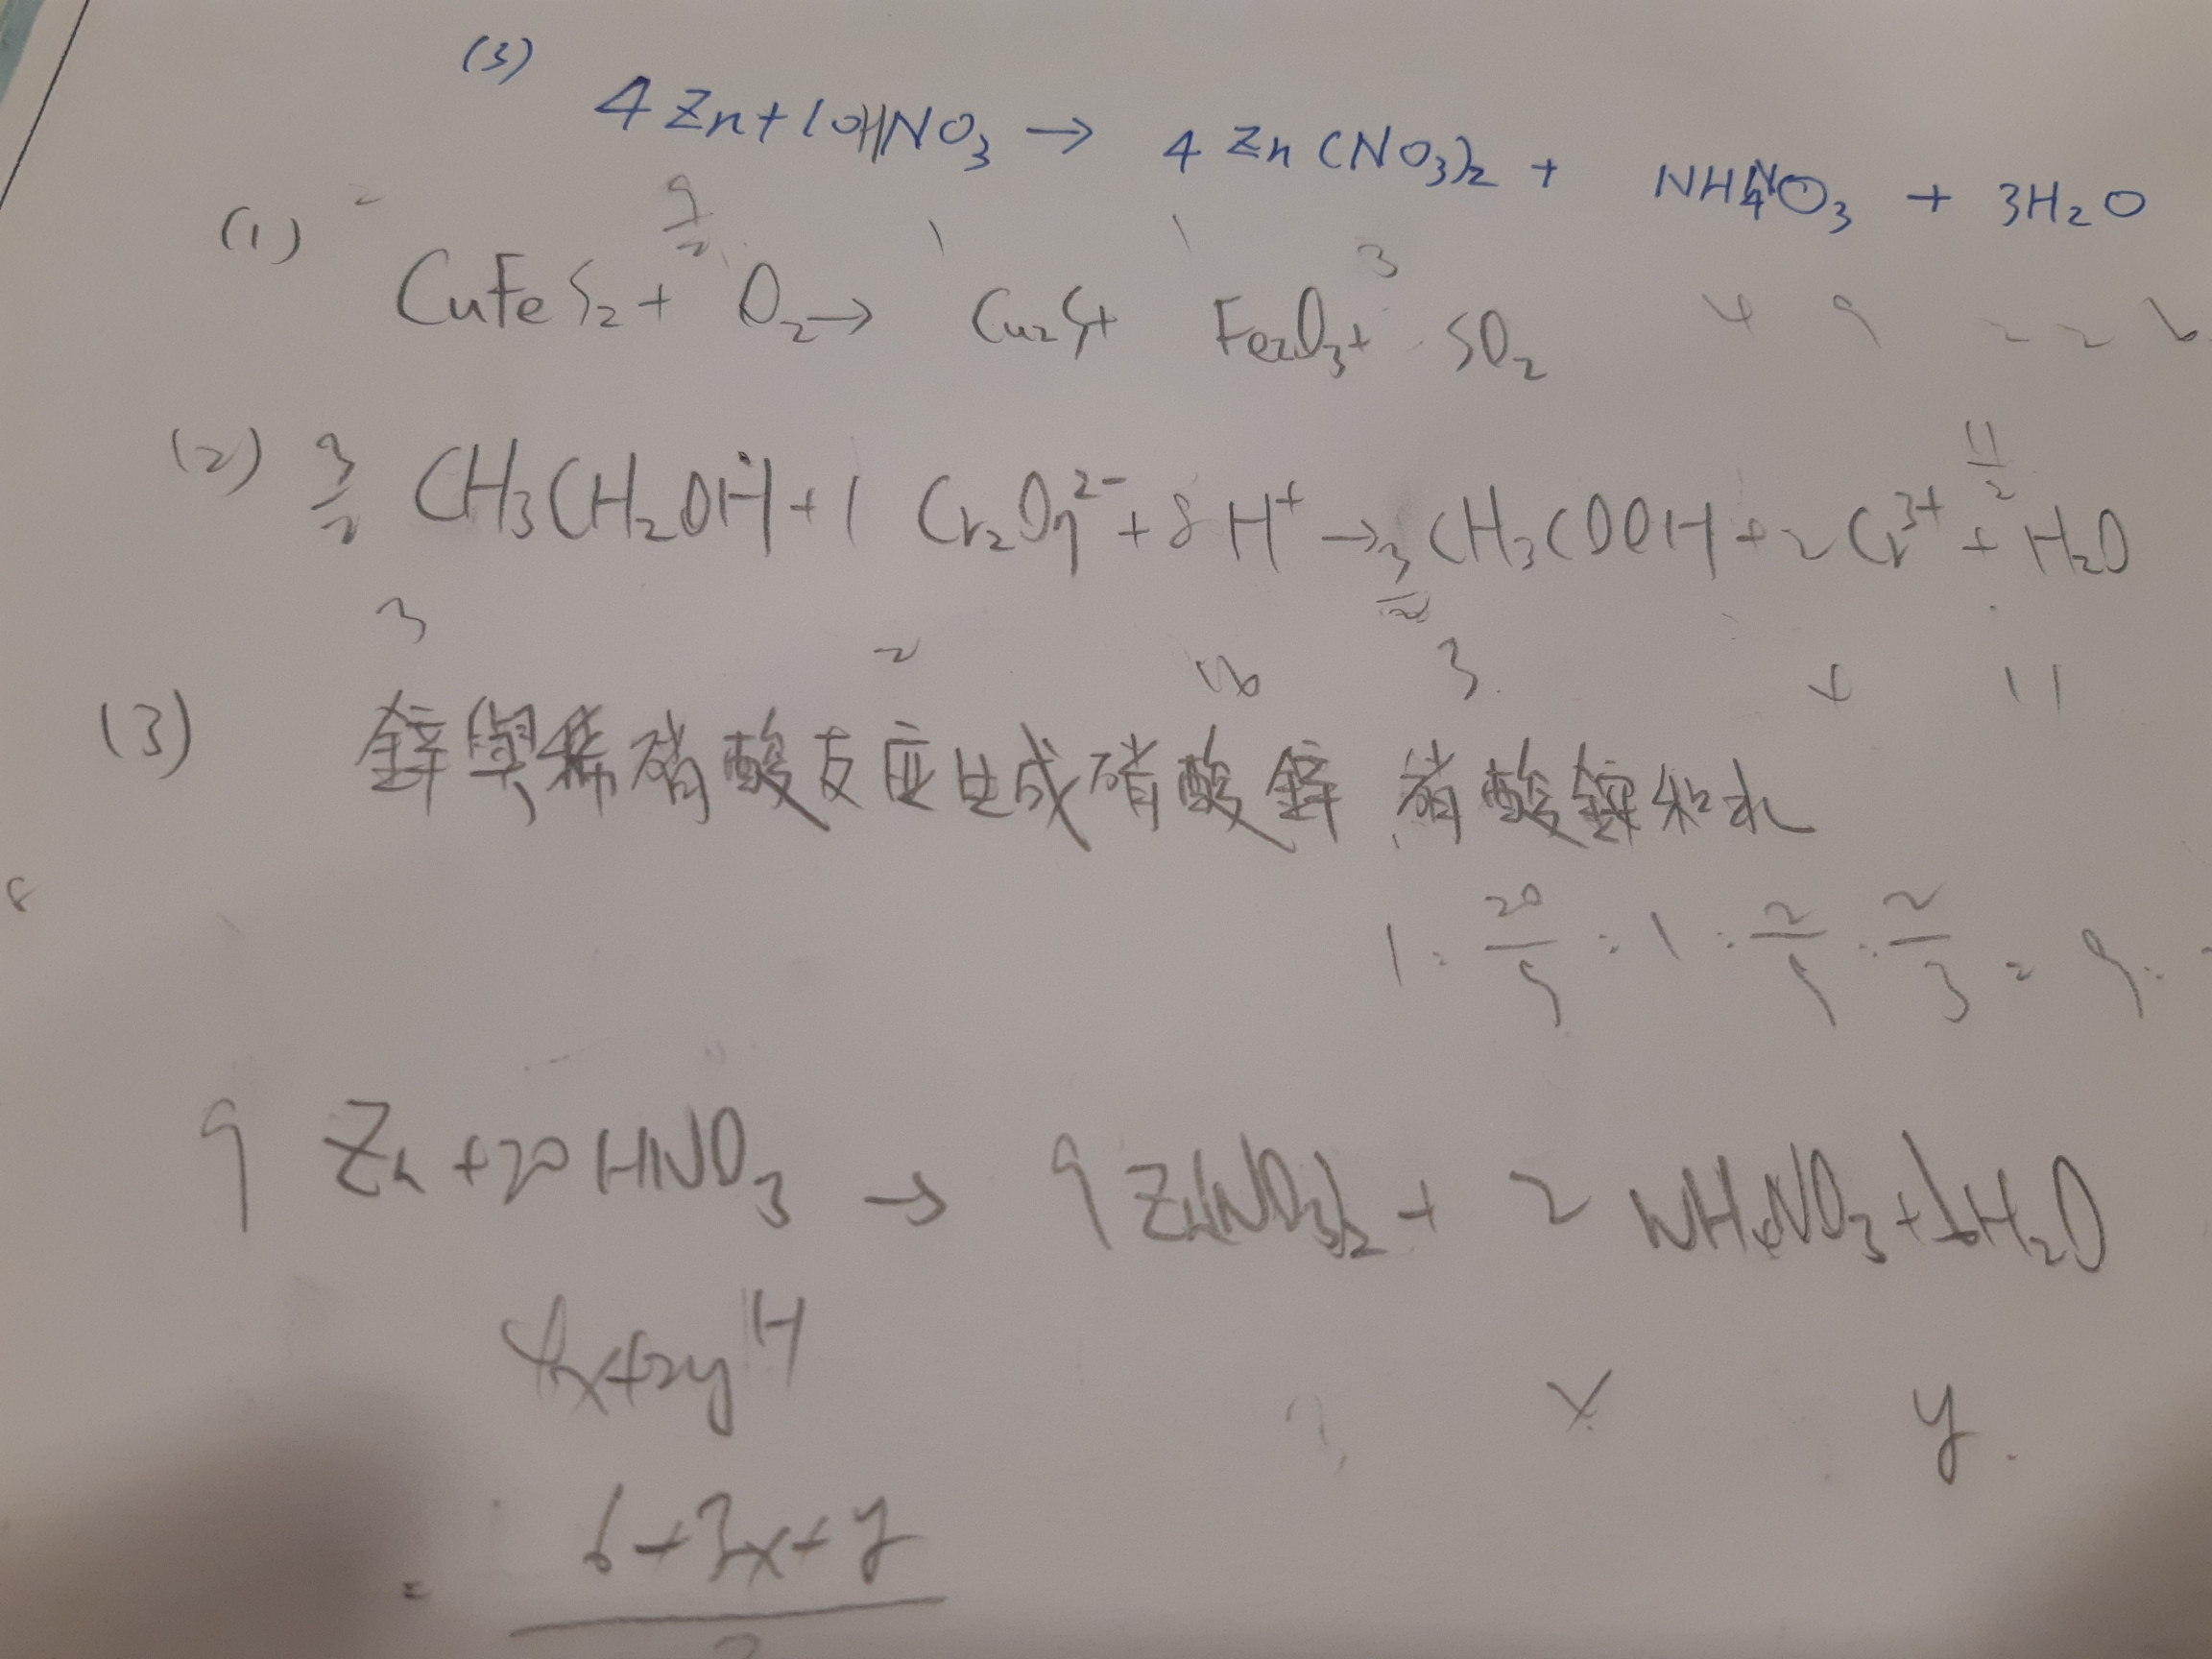 (3)
4 Zn + 10HNO₃ → 4 Zn(NO₃)₂ + NH₄NO₃ + 3H₂O
2 9/2 1 1 3
(1) CuFeS₂ + O₂ → Cu₂S + Fe₂O₃ + SO₂ 4 9 2 2 6
(2) 3/2 CH₃CH₂OH + 1 Cr₂O₇²⁻ + 8H⁺ → 3/2 CH₃COOH + 2Cr³⁺ + 11/2 H₂O
3 2 16 3 4 11
(3) 鋅與稀硝酸反应生成硝酸鋅 硝酸銨和水
8
1 : 20/9 : 1 : 2/9 : 2/3 = 9 :
9 Zn + 20 HNO₃ → 9 Zn(NO₃)₂ + 2 NH₄NO₃ + 6H₂O
4x+2y H x y
= 6+3x+y